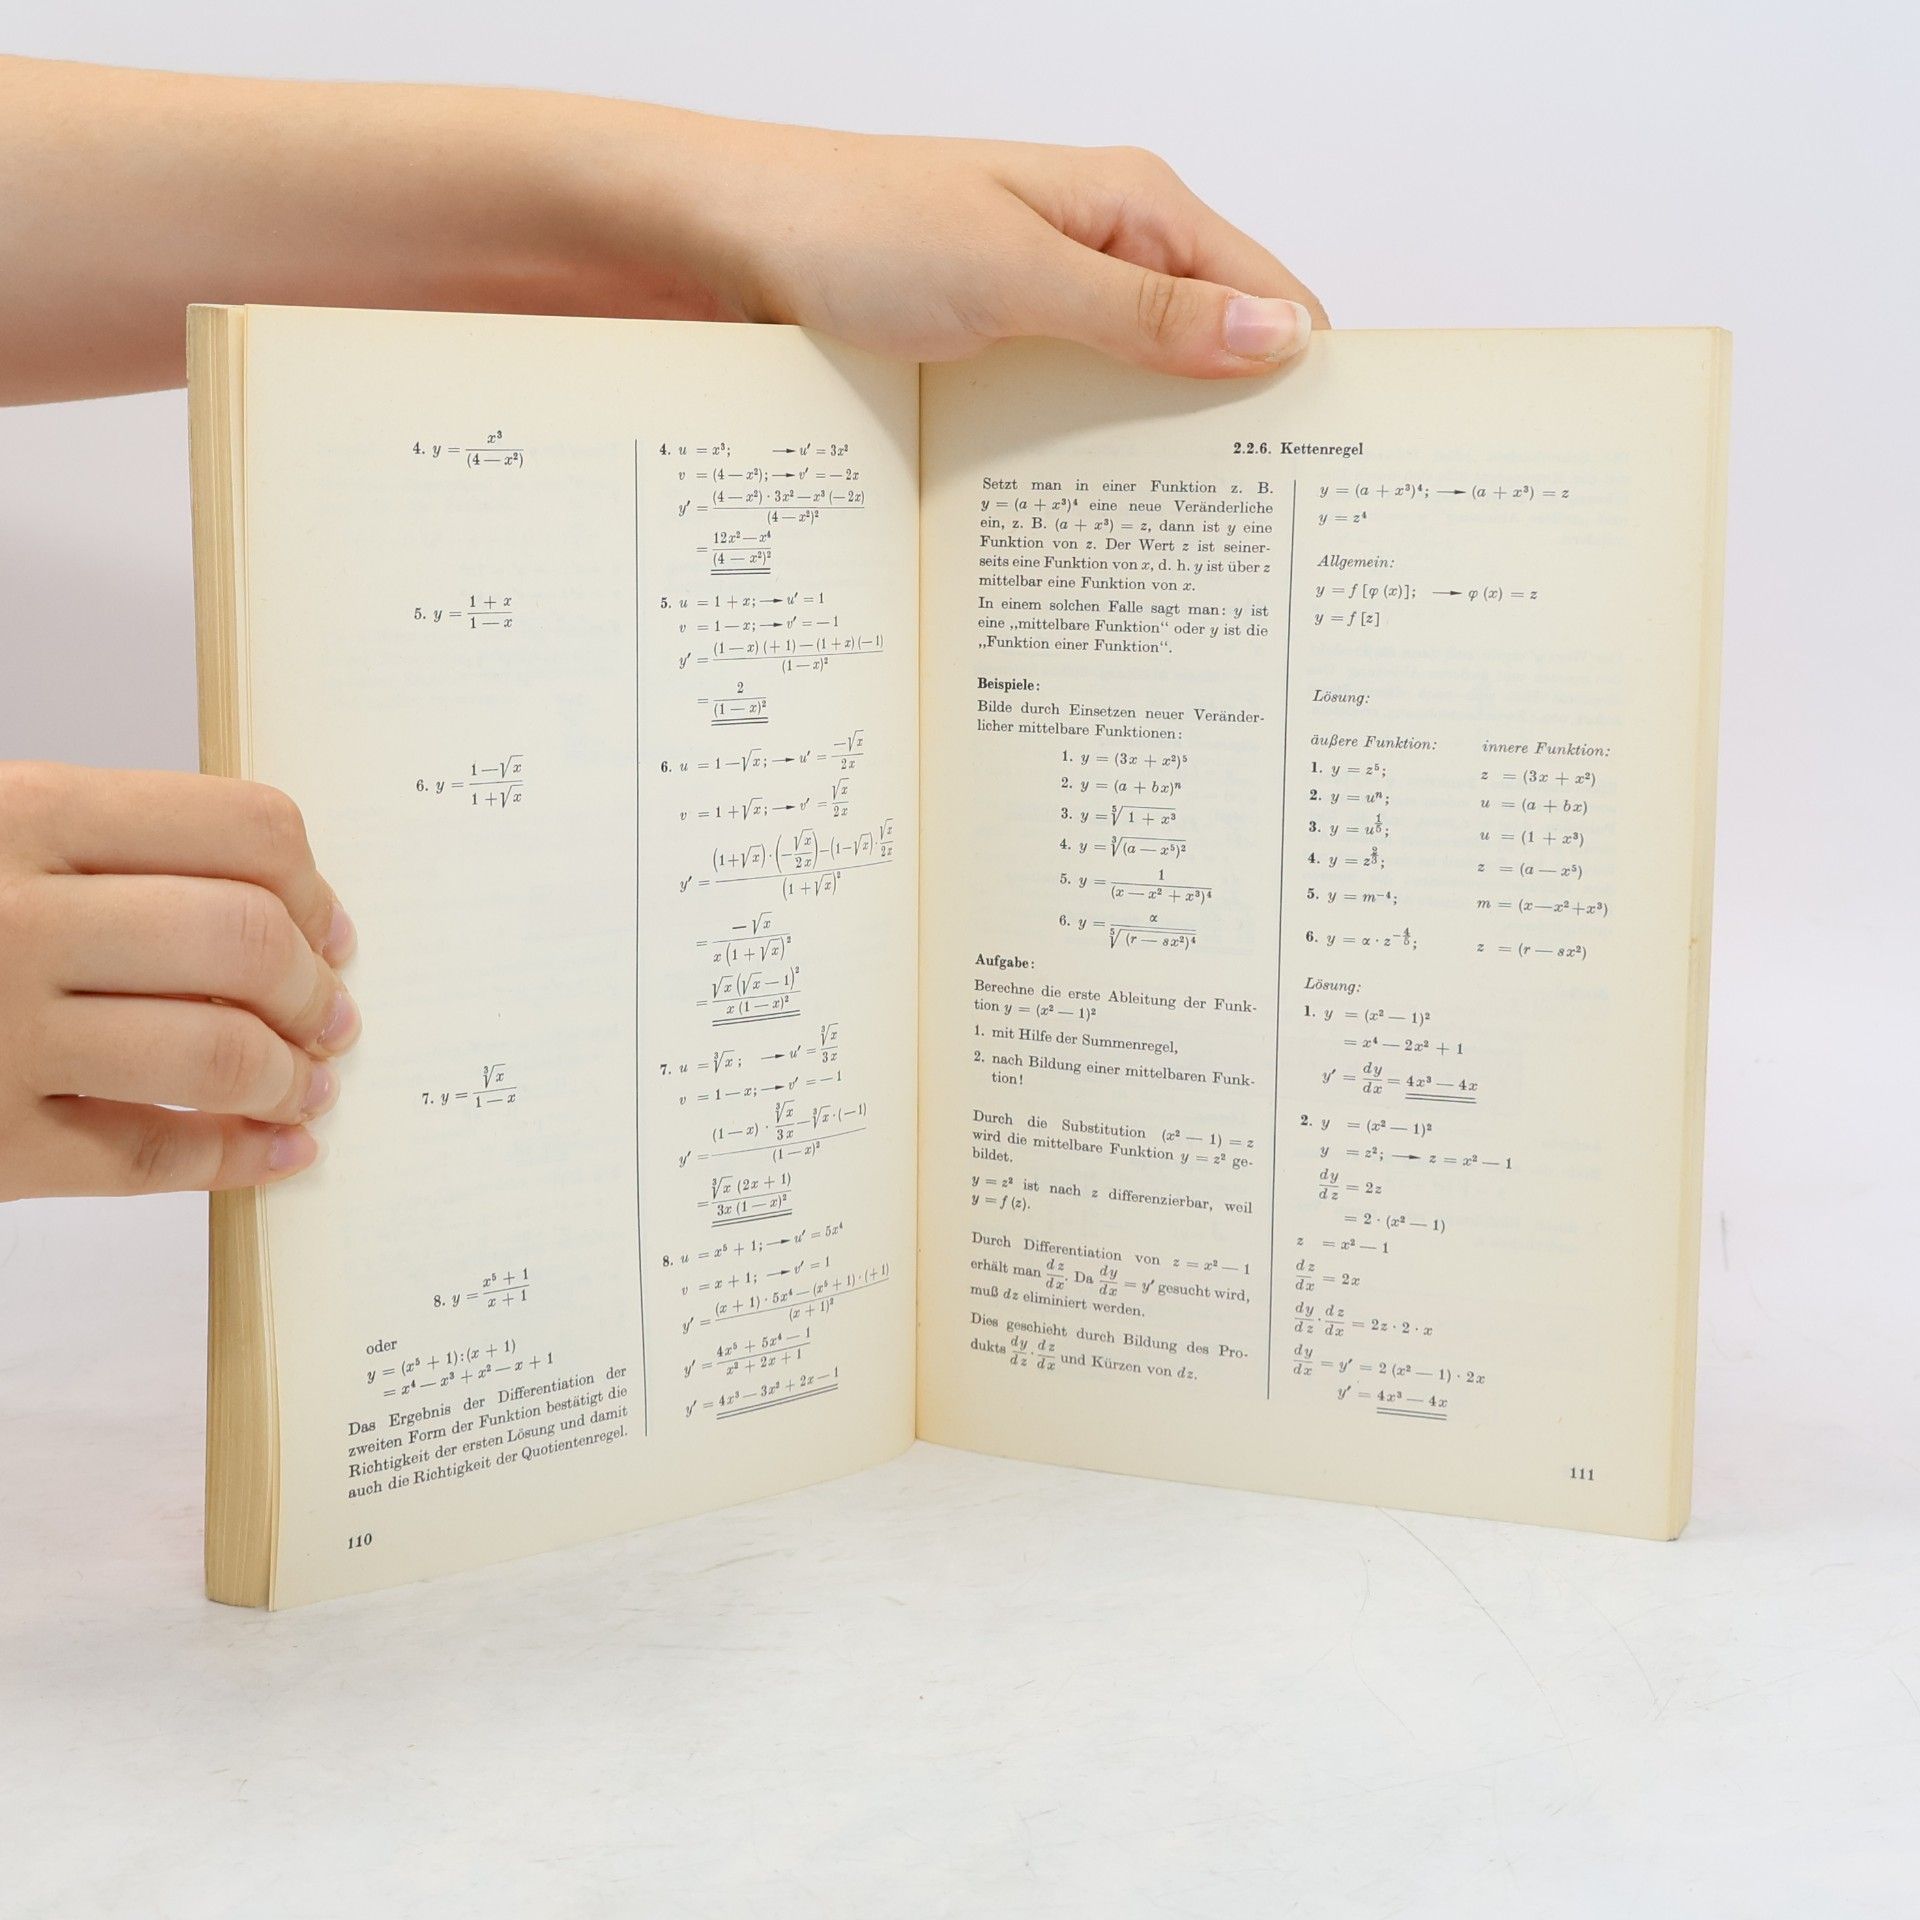 4. y = x³/(4 — x²)
5. y = (1 + x)/(1 — x)
6. y = (1—√x)/(1+√x)
7. y = ∛x/(1 — x)
8. y = (x⁵ + 1)/(x + 1)
oder
y = (x⁵ + 1):(x + 1)
= x⁴ — x³ + x² — x + 1
Das Ergebnis der Differentiation der
zweiten Form der Funktion bestätigt die
Richtigkeit der ersten Lösung und damit
auch die Richtigkeit der Quotientenregel.
4. u = x³; → u′ = 3x²
v = (4 — x²); → v′ = — 2x
y′ = ((4 — x²) · 3x² — x³ (— 2x))/(4 — x²)²
= (12x² — x⁴)/(4 — x²)²
5. u = 1 + x; → u′ = 1
v = 1 — x; → v′ = — 1
y′ = ((1 — x) (+ 1) — (1 + x) (— 1))/(1 — x)²
= 2/(1 — x)²
6. u = 1—√x; → u′ = —√x/2x
v = 1 +√x; → v′ = √x/2x
y′ = ((1+√x)·(—√x/2x)—(1—√x)·√x/2x)/(1 +√x)²
= — √x/(x (1 + √x)²)
= √x (√x — 1)²/(x (1 — x)²)
7. u = ∛x; → u′ = ∛x/3x
v = 1 — x; → v′ = — 1
y′ = ((1 — x) · ∛x/3x — ∛x · (— 1))/(1 — x)²
= ∛x (2x + 1)/(3x (1 — x)²)
8. u = x⁵ + 1; → u′ = 5x⁴
v = x + 1; → v′ = 1
y′ = ((x + 1) · 5x⁴ — (x⁵ + 1) · (+ 1))/(x + 1)²
y′ = (4x⁵ + 5x⁴ — 1)/(x² + 2x + 1)
y′ = 4x³ — 3x² + 2x — 1
110
2.2.6. Kettenregel
Setzt man in einer Funktion z. B.
y = (a + x³)⁴ eine neue Veränderliche
ein, z. B. (a + x³) = z, dann ist y eine
Funktion von z. Der Wert z ist seiner-
seits eine Funktion von x, d. h. y ist über z
mittelbar eine Funktion von x.
In einem solchen Falle sagt man: y ist
eine „mittelbare Funktion“ oder y ist die
„Funktion einer Funktion“.
Beispiele:
Bilde durch Einsetzen neuer Veränder-
licher mittelbare Funktionen:
1. y = (3x + x²)⁵
2. y = (a + bx)ⁿ
3. y = ⁵√(1 + x³)
4. y = ∛((a — x⁵)²)
5. y = 1/(x — x² + x³)⁴
6. y = α/⁵√((r — sx²)⁴)
Aufgabe:
Berechne die erste Ableitung der Funk-
tion y = (x² — 1)²
1. mit Hilfe der Summenregel,
2. nach Bildung einer mittelbaren Funk-
tion!
Durch die Substitution (x² — 1) = z
wird die mittelbare Funktion y = z² ge-
bildet.
y = z² ist nach z differenzierbar, weil
y = f (z).
Durch Differentiation von z = x² — 1
erhält man dz/dx. Da dy/dx = y′ gesucht wird,
muß dz eliminiert werden.
Dies geschieht durch Bildung des Pro-
dukts dy/dz · dz/dx und Kürzen von dz.
y = (a + x³)⁴; → (a + x³) = z
y = z⁴
Allgemein:
y = f [φ (x)]; → φ (x) = z
y = f [z]
Lösung:
äußere Funktion: innere Funktion:
1. y = z⁵; z = (3x + x²)
2. y = uⁿ; u = (a + bx)
3. y = u^(1/5); u = (1 + x³)
4. y = z^(2/3); z = (a — x⁵)
5. y = m⁻⁴; m = (x—x²+x³)
6. y = α · z^(—4/5); z = (r — sx²)
Lösung:
1. y = (x² — 1)²
= x⁴ — 2x² + 1
y′ = dy/dx = 4x³ — 4x
2. y = (x² — 1)²
y = z²; → z = x² — 1
dy/dz = 2z
= 2 · (x² — 1)
z = x² — 1
dz/dx = 2x
dy/dz · dz/dx = 2z · 2 · x
dy/dx = y′ = 2 (x² — 1) · 2x
y′ = 4x³ — 4x
111